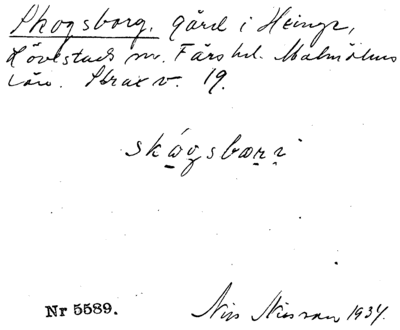 Skogsborg, gård i Heinge,
Lövestads sn. Färs hd. Malmöhus
län. Strax v. 19.
skógsbœri
Nr 5589.
Nils Nilsson 1934.